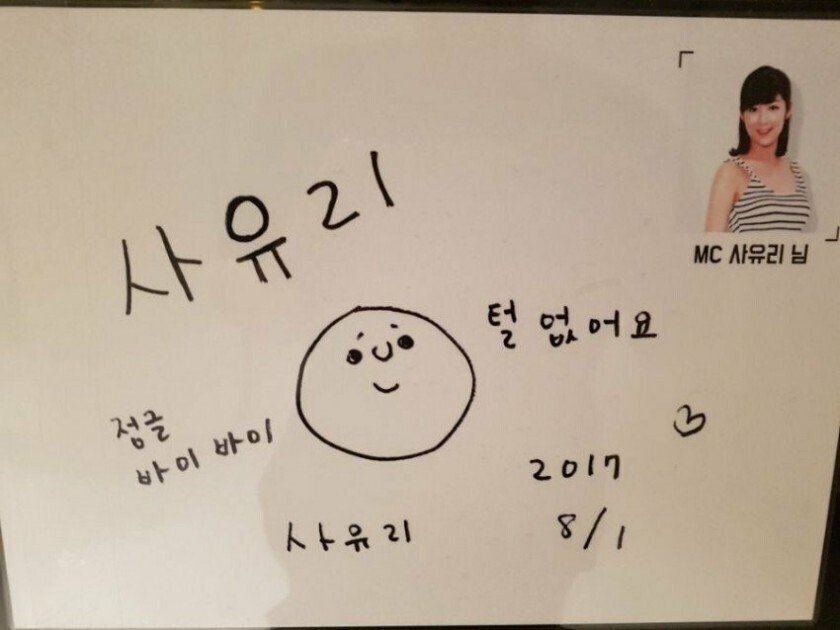 MC 사유리 님
사유리
털 없어요
정글
바이 바이
2017
사유리
8/1